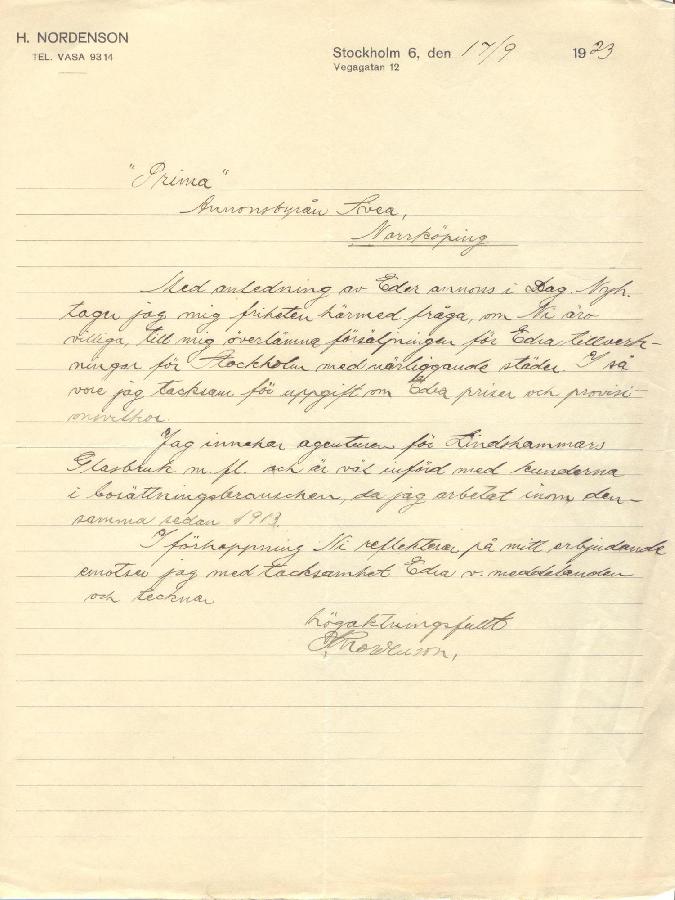 H. NORDENSON
TEL. VASA 9314
Stockholm 6, den 17/9 1923
Vegagatan 12
"Prima"
Annonsbyrån Svea,
Norrköping
Med anledning av Eder annons i Dag. Nyh.
tager jag mig friheten härmed fråga, om Ni äro
villiga, till mig överlämna försäljningen för Edra tillverk-
ningar för Stockholm med närliggande städer. I så
vore jag tacksam för uppgift om Edra priser och provisi-
onsvillkor.
Jag innehar agenturen för Lindshammars
Glasbruk m. fl. och är väl införd med kunderna
i bosättningsbranschen, då jag arbetat inom den-
samma sedan 1913.
I förhoppning Ni reflekterar på mitt erbjudande
emotser jag med tacksamhet Edra v. meddelanden
och tecknar
högaktningsfullt
H. Nordenson.